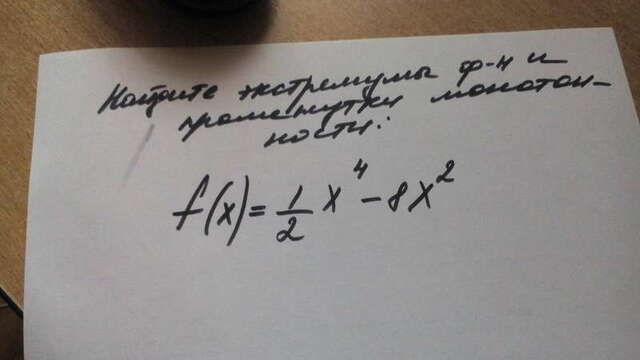 Найдите экстремумы ф-н и
промежутки монотон-
ности:
f(x)=\frac{1}{2}x^4-8x^2